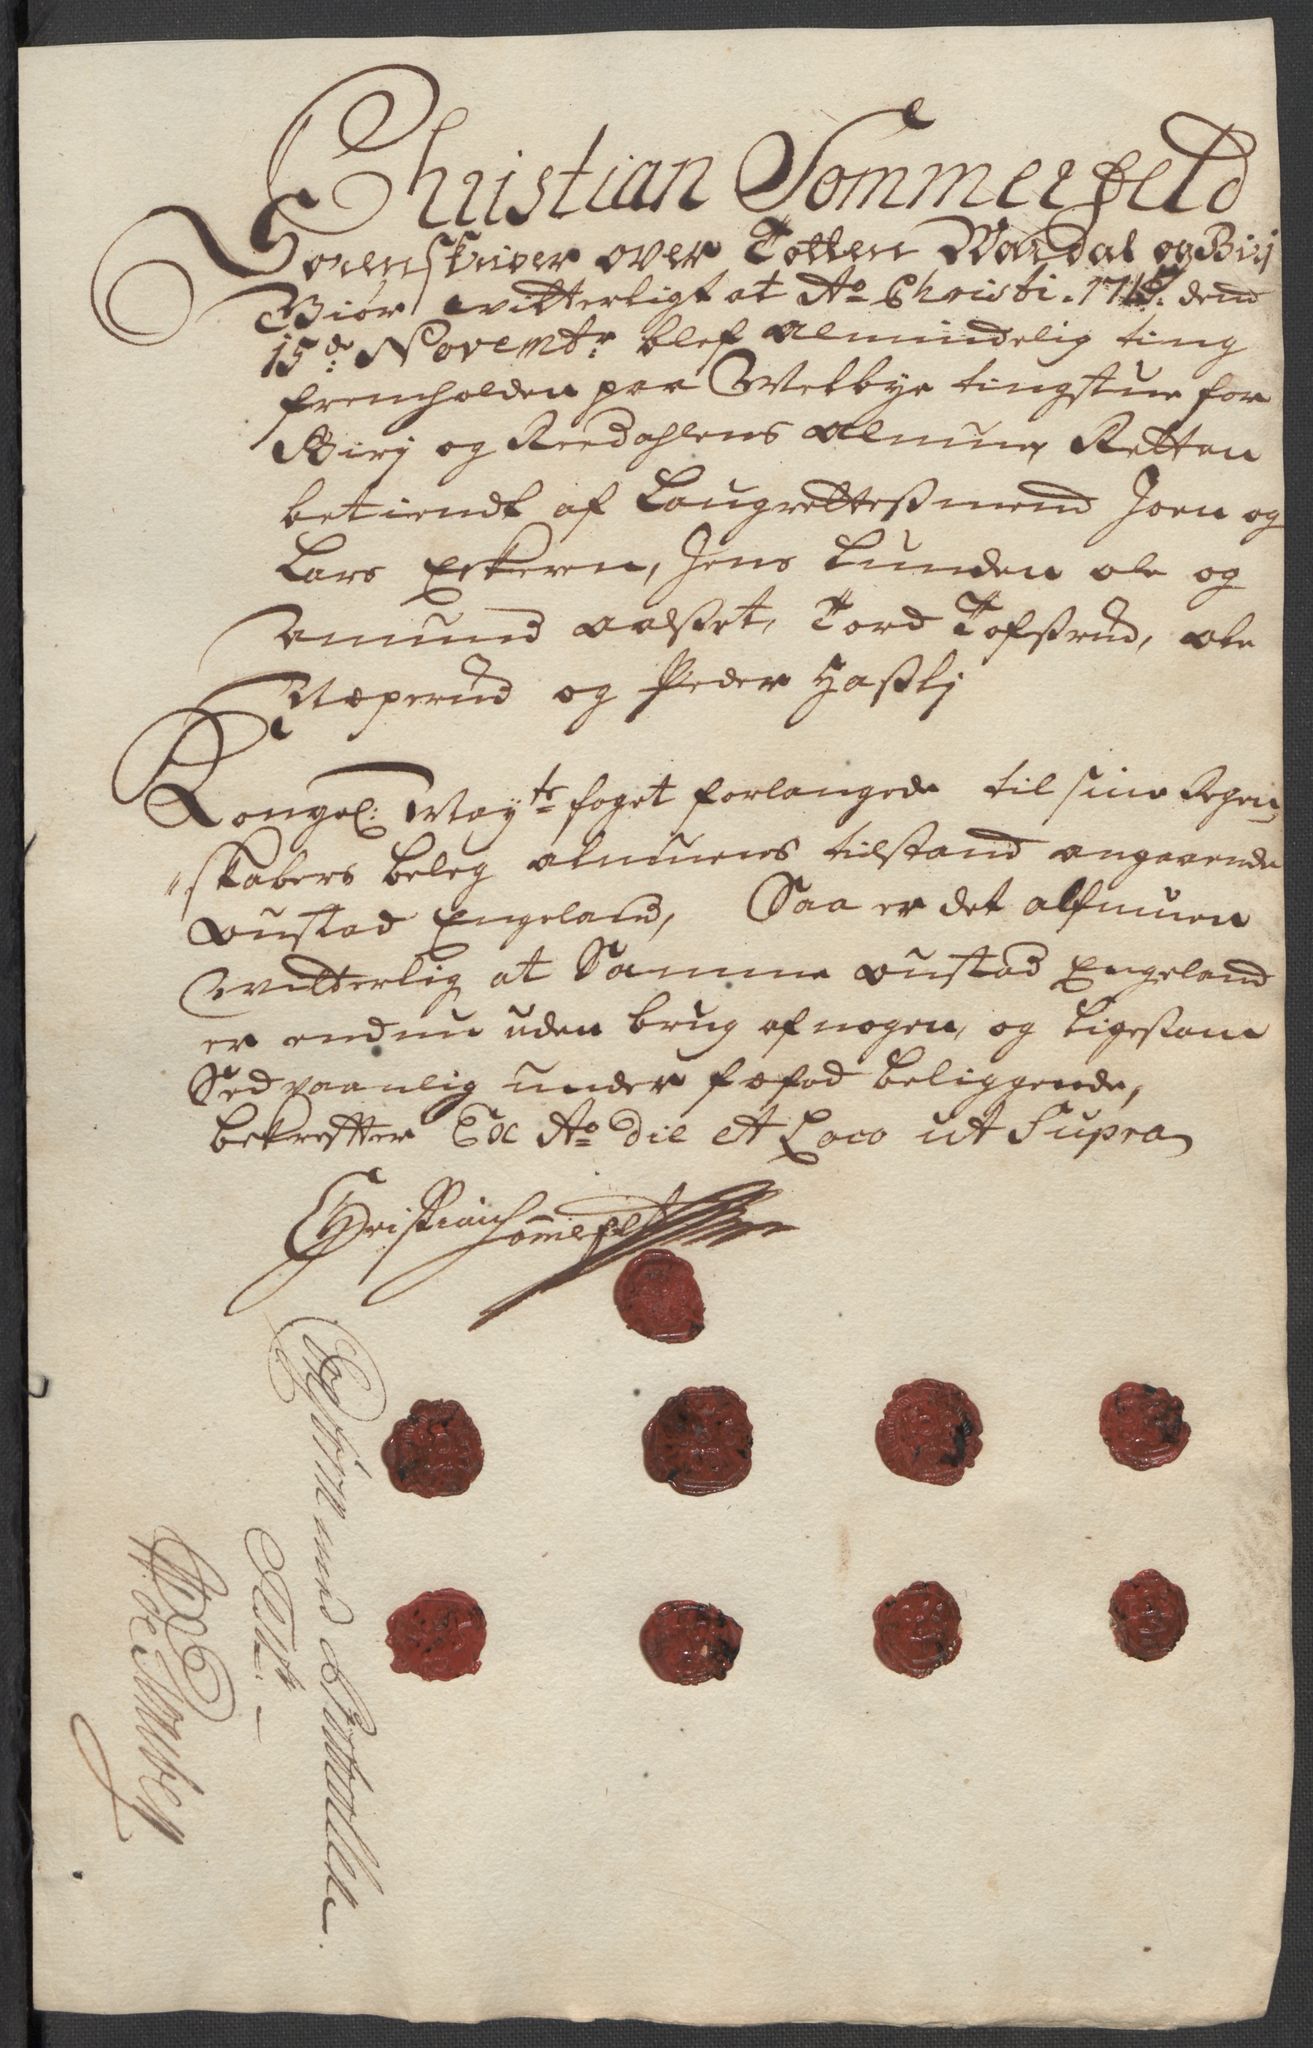 Christian Sommerfeld
Sorenskriver over Totten Wardal og Birj
Giør witterligt at Ao Christi. 1715. dend
15de Novembr blef almindelig ting
fremholden paa Welbye tingstue for
Birj og Reedahlens almue, Retten
betiendt af Laugrettesmend Joen og
Lars Eekeren, Jens Lunden ole og
Amund aalset, Tord Tofsrud, ole
Næperud og Peder Hasli
Kongel: Mayts foget forlangede til sine Regen,,
,,skabers beleg almuens tilstand angaaende
oustad Engeland, Saa er det almuen
witterlig at Samme oustad Engeland
er endnu uden brug af nogen, og ligesom
Sedvaanlig under fæfod beliggende,
bekrefter Ex Ao die et Loco ut Supra
Christian Sommerfelt
med Protocollen